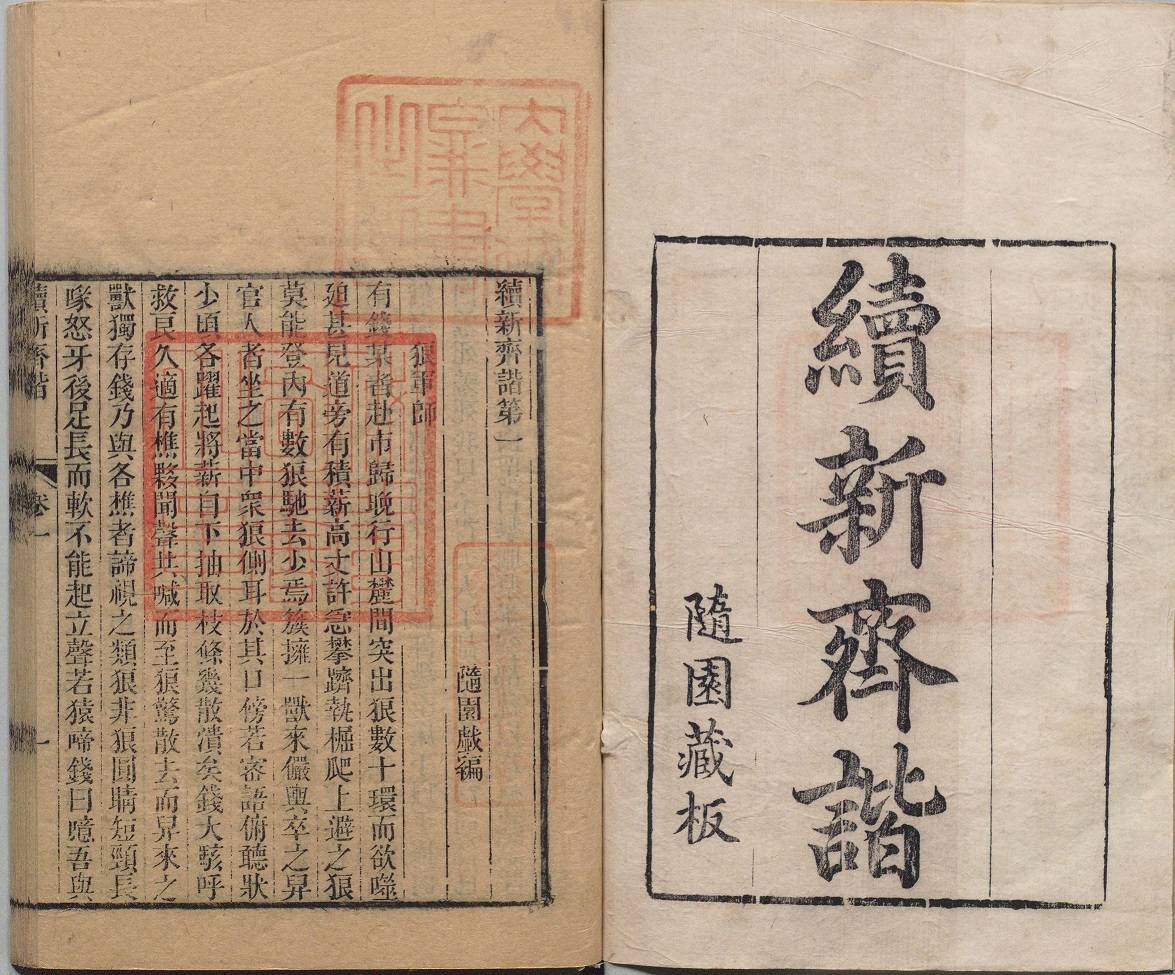 續新齊諧
隨園藏板
續新齊諧第一
隨園戲編
狼軍師
有錢某者赴市歸晚行山麓間突出狼數十環而欲噬
迴甚見道旁有積薪高丈許急攀躋執掘爬上避之狼
莫能登內有數狼馳去少焉簇擁一獸來儼輿卒之舁
官人者坐之當中衆狼側耳於其口傍若密語俯聽狀
少頃各躍起將薪自下抽取枝條幾散潰矣錢大駭呼
救良久適有樵夥聞聲共喊而至狼驚散去而舁來之
獸獨存錢乃與各樵者諦視之類狼非狼圓睛短頸長
喙怒牙後足長而軟不能起立聲若猿啼錢曰噫吾與
續新齊諧
卷一
一